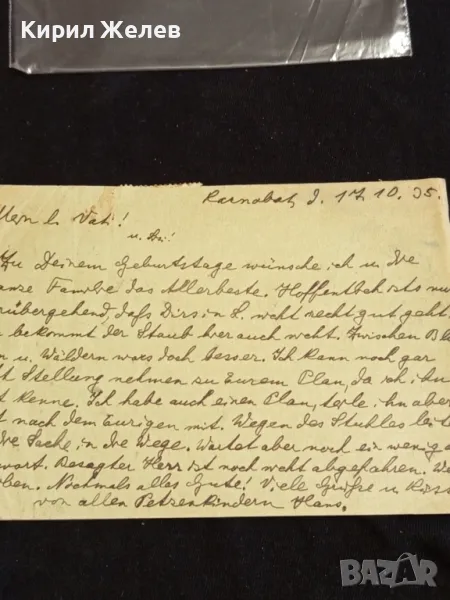 Кирил Желев
Karnobat, d. 17. 10. 35.
Mein l. Vati!
u. Du!
Zu Deinem Geburtstage wünsche ich u. die
anze Familie das Allerbeste. Hoffentlich ists nu
rübergehend, daß Dirs in S. nicht recht gut geht.
bekommt der Staub hier auch nicht. Zwischen
n u. Wäldern wars doch besser. Ich kann noch gar
t Stellung nehmen zu Eurem Plan, da ich ihn
t kenne. Ich habe auch einen Plan, teile ihn aber
t nach dem Eurigen mit. Wegen des Stuhles leite
die Sache in die Wege. Wartet aber noch ein wenig
wort. Besagter Herr ist noch nicht abgefahren. We
ben. Nochmals alles Gute! Viele Grüße u. Küss
von allen Petzenkindern Hans.
BAZAR
bg